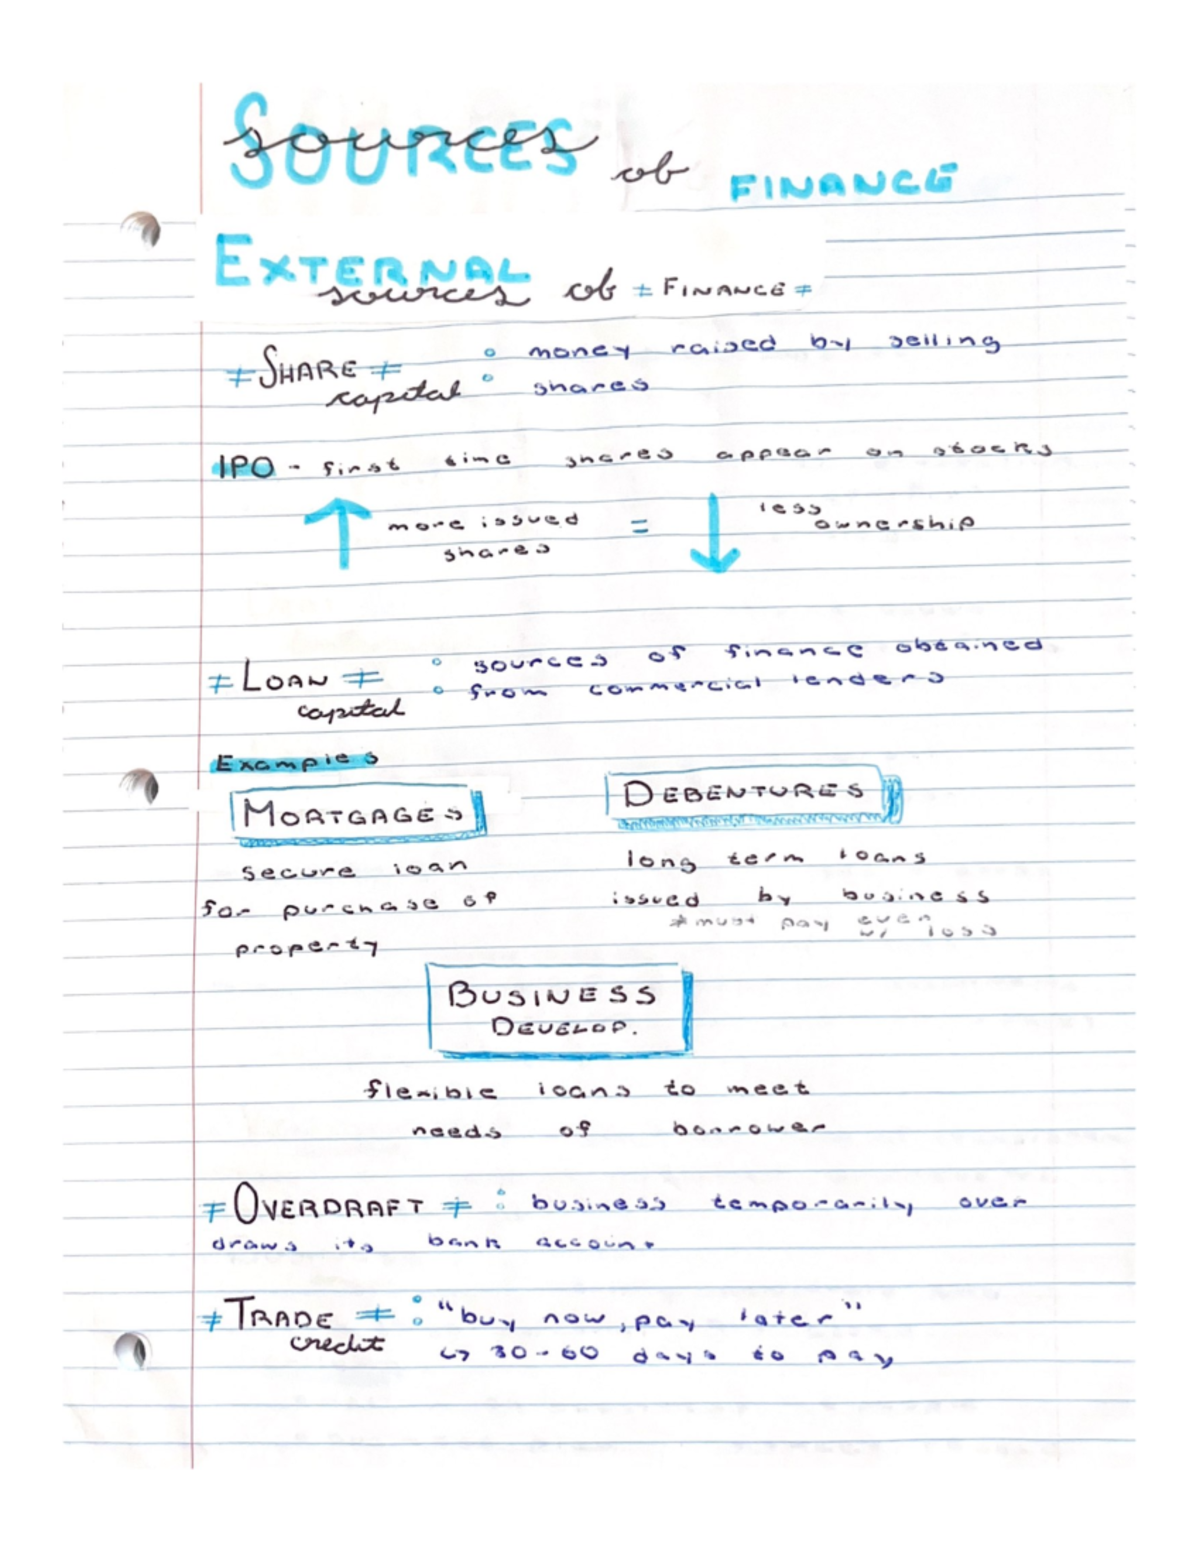 Sources SOURCES of FINANCE
EXTERNAL sources of FINANCE
SHARE capital : money raised by selling
shares
IPO - first time shares appear on stocks
↑ more issued shares = ↓ less ownership
LOAN capital : sources of finance obtained
from commercial lenders
Examples
MORTGAGES
secure loan
for purchase of
property
DEBENTURES
long term loans
issued by business
*must pay even w/ loss
BUSINESS
DEVELOP.
flexible loans to meet
needs of borrower
OVERDRAFT : business temporarily over
draws its bank account
TRADE credit : "buy now, pay later"
↳ 30-60 days to pay